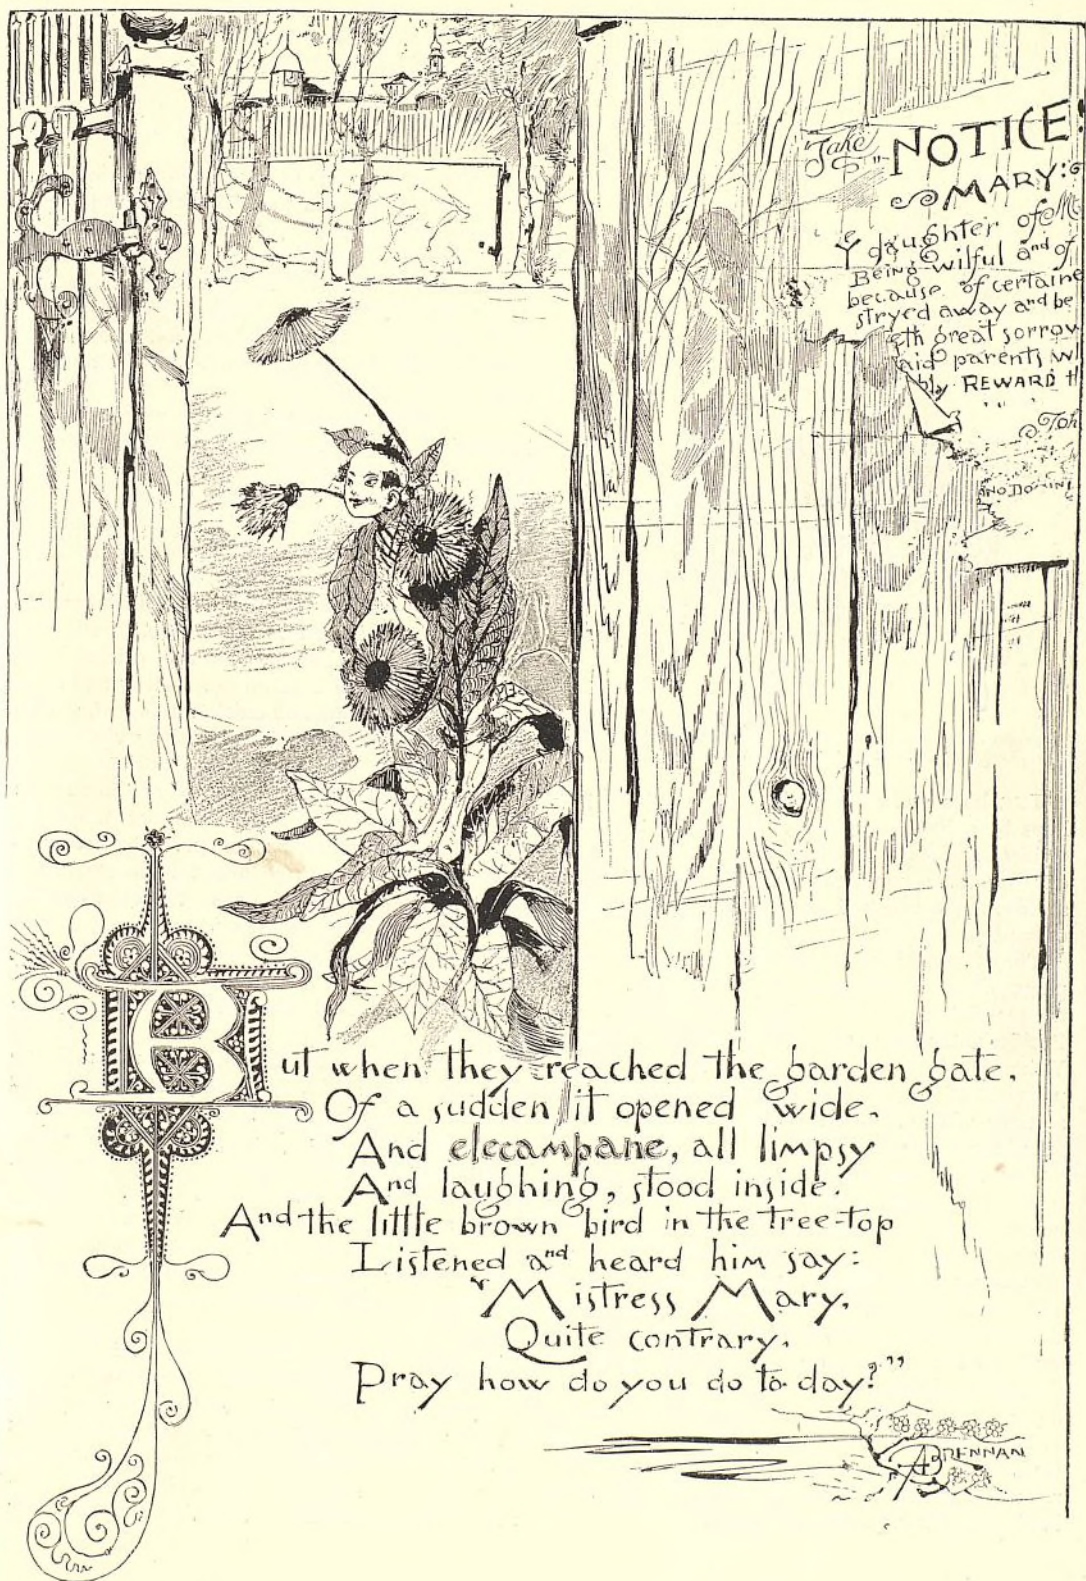 "Take
NOTICE
MARY:
Ye daughter of
Being wilful and of
because of certaine
stryed away and be
eth great sorrow
aid parents
bly REWARD
Joh
ANO DOMINI
But when they reached the garden gate,
Of a sudden it opened wide,
And elecampane, all limpsy
And laughing, stood inside.
And the little brown bird in the tree-top
Listened and heard him say:
"Mistress Mary,
Quite contrary,
Pray how do you do to-day?"
A BRENNAN